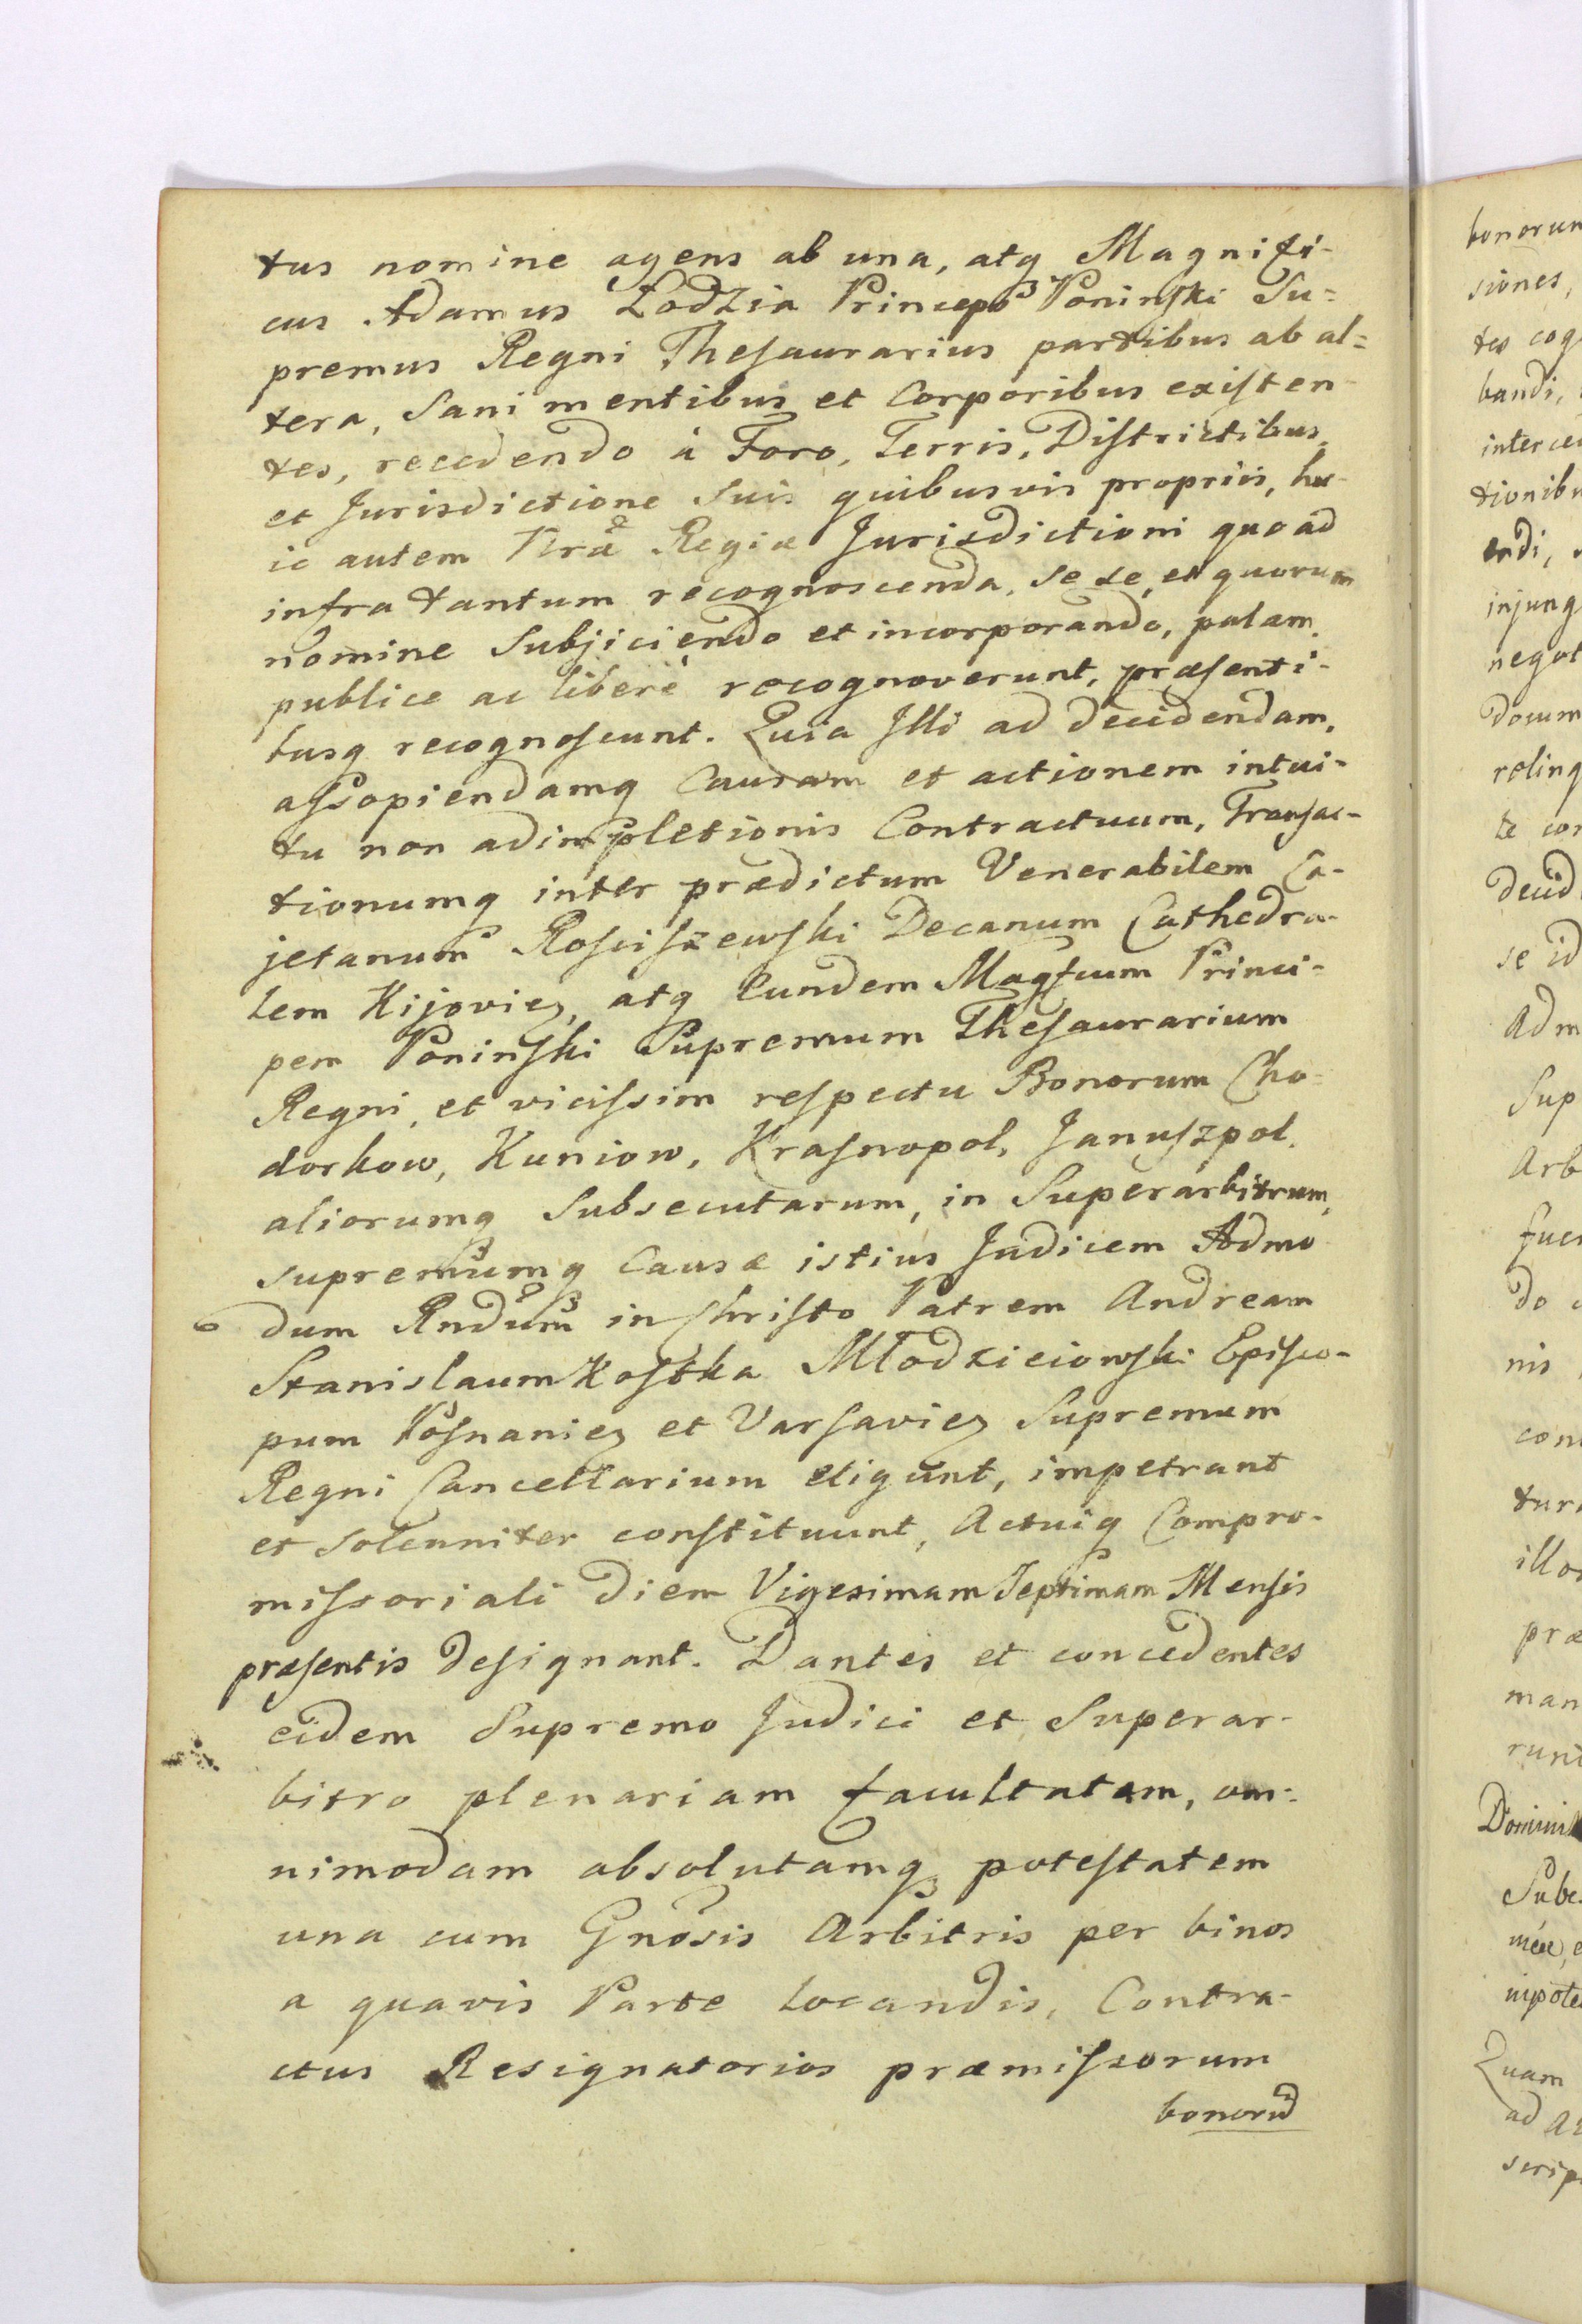 tus nomine agens ab una, atq Magnifi-
cus Adamus Łodzia Princeps Poninski Su=
premus Regni Thesaurarius partibus ab al=
tera, Sani mentibus et Corporibus existen
tes, recedendo à Foro, Terris, Districtibus,
et Jurisdictione Suis quibusvis propriis, hu-
ic autem Nrae Regiae Jurisdictioni quoad
infra tantum recognoscenda, se se, et quorum
nomine Subjiciendo et incorporando, palam,
publice ac liberè recognoverunt, praesenti-
busq recognoscunt. Quia Illi ad decidendam,
assopiendamq Causam et actionem intui-
tu non adimpletionis Contractuum, Transac-
tionumq inter praedictum Venerabilem Ca-
jetanum Rosciszewski Decanum Cathedra-
lem Kijovien, atq Eundem Magfcum Princi-
pem Poninski Supremum Thesaurarium
Regni, et vicissim respectu Bonorum Cho-
dorkow, Kuniow, Krasnopol, Januszpol,
aliorumq Subsecutarum, in Superarbitrum,
supremumq Causae istius Judicem Admo
dum Rndum in Christo Patrem Andream
Stanislaum Kostka Młodzieiowski Episco-
pum Posnanien et Varsavien Supremum
Regni Cancellarium eligunt, impetrant
et solenniter constituunt, Actuiq Compro-
missoriali diem Vigesimam Septimam Mensis
praesentis designant. Dantes et concedentes
eidem Supremo Judici et Superar-
bitro plenariam facultatem, om-
nimodam absolutamq potestatem
una cum Gnosis Arbitris per binos
a quavis Parte locandis, Contra-
ctus Resignatorios praemissorum
bonorum
bonorum
siones,
bandi,
tionibu
endi,
injung
negot
docum
decid
se id
Adm
Sup
Arb
do
nis
illo
prae
man
Quam
ad